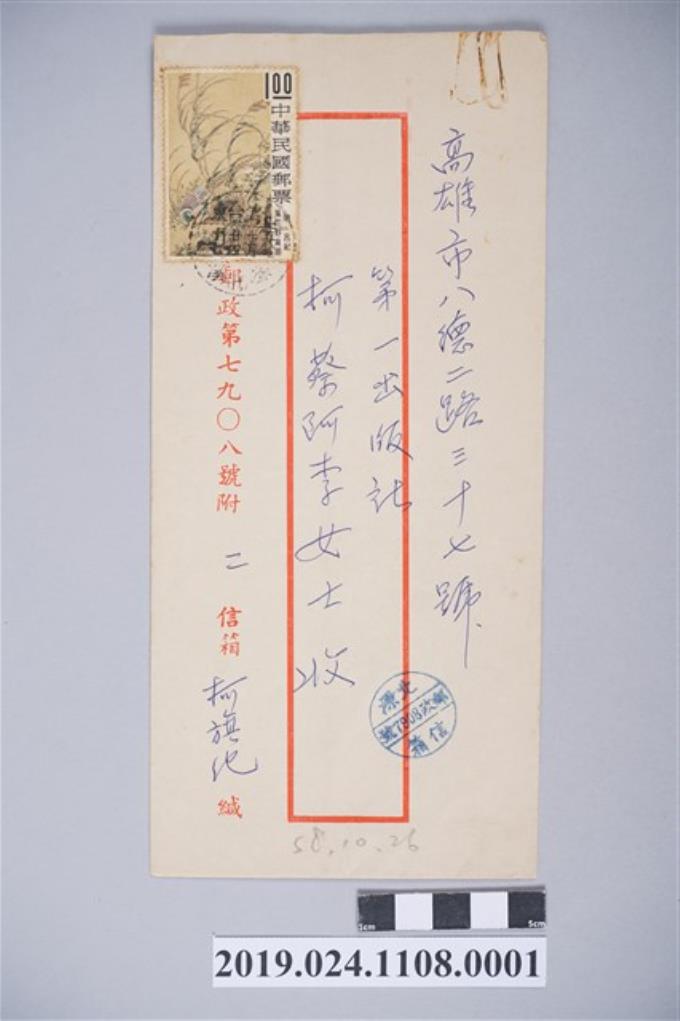 高雄市八德二路三十七號
第一出版社
柯蔡阿李女士 收
1.00
中華民國郵票
郵政第七九〇八號附 二 信箱 柯旗化 緘
郵政7908號
信箱
58.10.26
1cm 5cm
2019.024.1108.0001